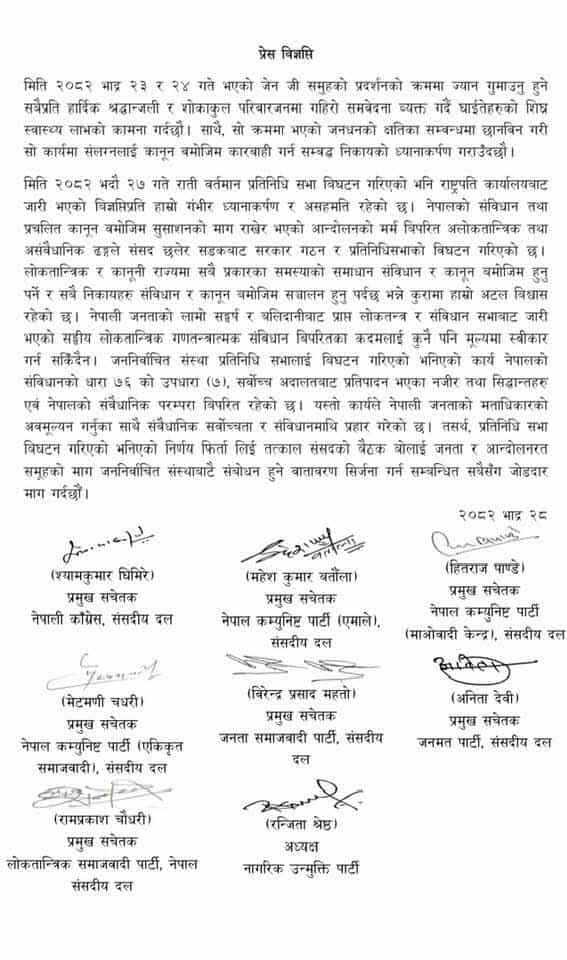 प्रेस विज्ञप्ति
मिति २०८२ भाद्र २३ र २४ गते भएको जेन जी समुहको प्रदर्शनको क्रममा ज्यान गुमाउनु हुने
सबैप्रति हार्दिक श्रद्धान्जली र शोकाकुल परिवारजनमा गहिरो समवेदना व्यक्त गर्दै घाईतेहरुको शिघ्र
स्वास्थ्य लाभको कामना गर्दछौ । साथै, सो क्रममा भएको जनधनको क्षतिका सम्वन्धमा छानविन गरी
सो कार्यमा संलग्नलाई कानून वमोजिम कारबाही गर्न सम्बद्ध निकायको ध्यानाकर्षण गराउँदछौ ।
मिति २०८२ भदौ २७ गते राती वर्तमान प्रतिनिधि सभा विघटन गरिएको भनि राष्ट्रपति कार्यालयबाट
जारी भएको विज्ञप्तिप्रति हाम्रो गंभीर ध्यानाकर्षण र असहमति रहेको छ । नेपालको संविधान तथा
प्रचलित कानून वमोजिम सुसाशनको माग राखेर भएको आन्दोलनको मर्म विपरित अलोकतान्त्रिक तथा
असंवैधानिक ढङ्गले संसद छलेर सडकबाट सरकार गठन र प्रतिनिधिसभाको विघटन गरिएको छ ।
लोकतान्त्रिक र कानूनी राज्यमा सबै प्रकारका समस्याको समाधान संविधान र कानून बमोजिम हुनु
पर्ने र सबै निकायहरु संविधान र कानून बमोजिम सञ्चालन हुनु पर्दछ भन्ने कुरामा हाम्रो अटल विश्वास
रहेको छ । नेपाली जनताको लामो सङ्घर्ष र बलिदानीबाट प्राप्त लोकतन्त्र र संविधान सभाबाट जारी
भएको सङ्घीय लोकतान्त्रिक गणतन्त्रात्मक संविधान विपरितका कदमलाई कुनै पनि मूल्यमा स्वीकार
गर्न सकिँदैन । जननिर्वाचित संस्था प्रतिनिधि सभालाई विघटन गरिएको भनिएको कार्य नेपालको
संविधानको धारा ७६ को उपधारा (७), सर्वोच्च अदालतबाट प्रतिपादन भएका नजीर तथा सिद्धान्तहरु
एवं नेपालको संवैधानिक परम्परा विपरित रहेको छ । यस्तो कार्यले नेपाली जनताको मताधिकारको
अवमूल्यन गर्नुका साथै संवैधानिक सर्वोच्चता र संविधानमाथि प्रहार गरेको छ । तसर्थ, प्रतिनिधि सभा
विघटन गरिएको भनिएको निर्णय फिर्ता लिई तत्काल संसदको बैठक बोलाई जनता र आन्दोलनरत
समूहको माग जननिर्वाचित संस्थाबाटै संबोधन हुने वातावरण सिर्जना गर्न सम्बन्धित सबैसँग जोडदार
माग गर्दछौं ।
२०८२ भाद्र २८
(श्यामकुमार घिमिरे)
प्रमुख सचेतक
नेपाली काँग्रेस, संसदीय दल
(महेश कुमार बर्तौला)
प्रमुख सचेतक
नेपाल कम्युनिष्ट पार्टी (एमाले),
संसदीय दल
(हितराज पाण्डे)
प्रमुख सचेतक
नेपाल कम्युनिष्ट पार्टी
(माओवादी केन्द्र), संसदीय दल
(मेटमणी चधरी)
प्रमुख सचेतक
नेपाल कम्युनिष्ट पार्टी (एकिकृत
समाजवादी), संसदीय दल
(विरेन्द्र प्रसाद महतो)
प्रमुख सचेतक
जनता समाजवादी पार्टी, संसदीय
दल
(अनिता देवी)
प्रमुख सचेतक
जनमत पार्टी, संसदीय दल
(रामप्रकाश चौधरी)
प्रमुख सचेतक
लोकतान्त्रिक समाजवादी पार्टी, नेपाल
संसदीय दल
(रन्जिता श्रेष्ठ)
अध्यक्ष
नागरिक उन्मुक्ति पार्टी